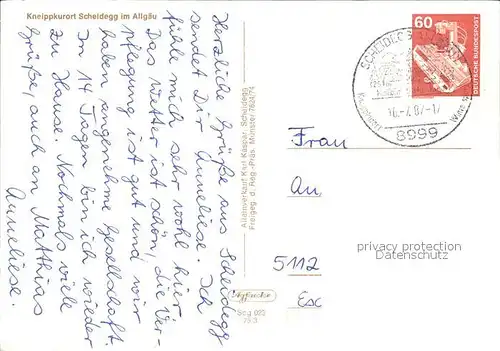 Kneippkurort Scheidegg im Allgäu
Herzliche Grüße aus Scheidegg
sendet Dir Anneliese. Ich
fühle mich sehr wohl hier.
Das Wetter ist schön, die Ver-
pflegung ist gut und wir
haben angenehme Gesellschaft.
In 14 Tagen bin ich wieder
zu Hause. Nochmals viele
Grüße, auch an Matthias
Anneliese.
Alleinverkauf Karl Kaspar, Scheidegg
Freigeg. d. Reg.-Präs. Münster
60
DEUTSCHE BUNDESPOST
8999
Frau
An
5112
Esc
privacy protection
watermark